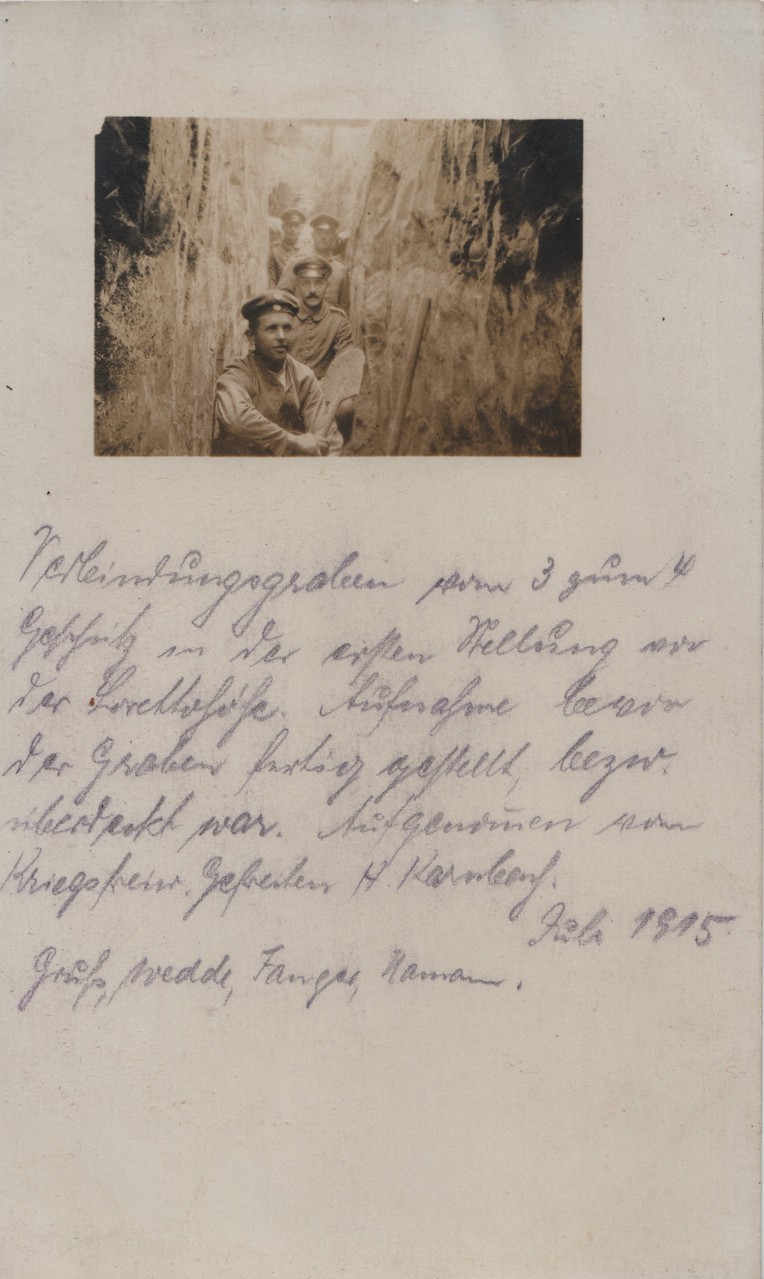 Verbindungsgraben vom 3 zum 4
Geschütz in der ersten Stellung vor
der Lorettohöhe. Aufnahme bevor
der Graben fertig gestellt, bezw.
überdeckt war. Aufgenommen vom
Kriegsfreiw. Gefreiten H. Karnbach.
Juli 1915
Gruß, Wedde, Fanger, Hamann.